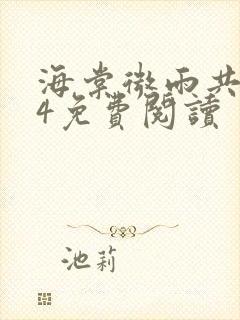 海棠微雨共
4免費閱讀
池莉